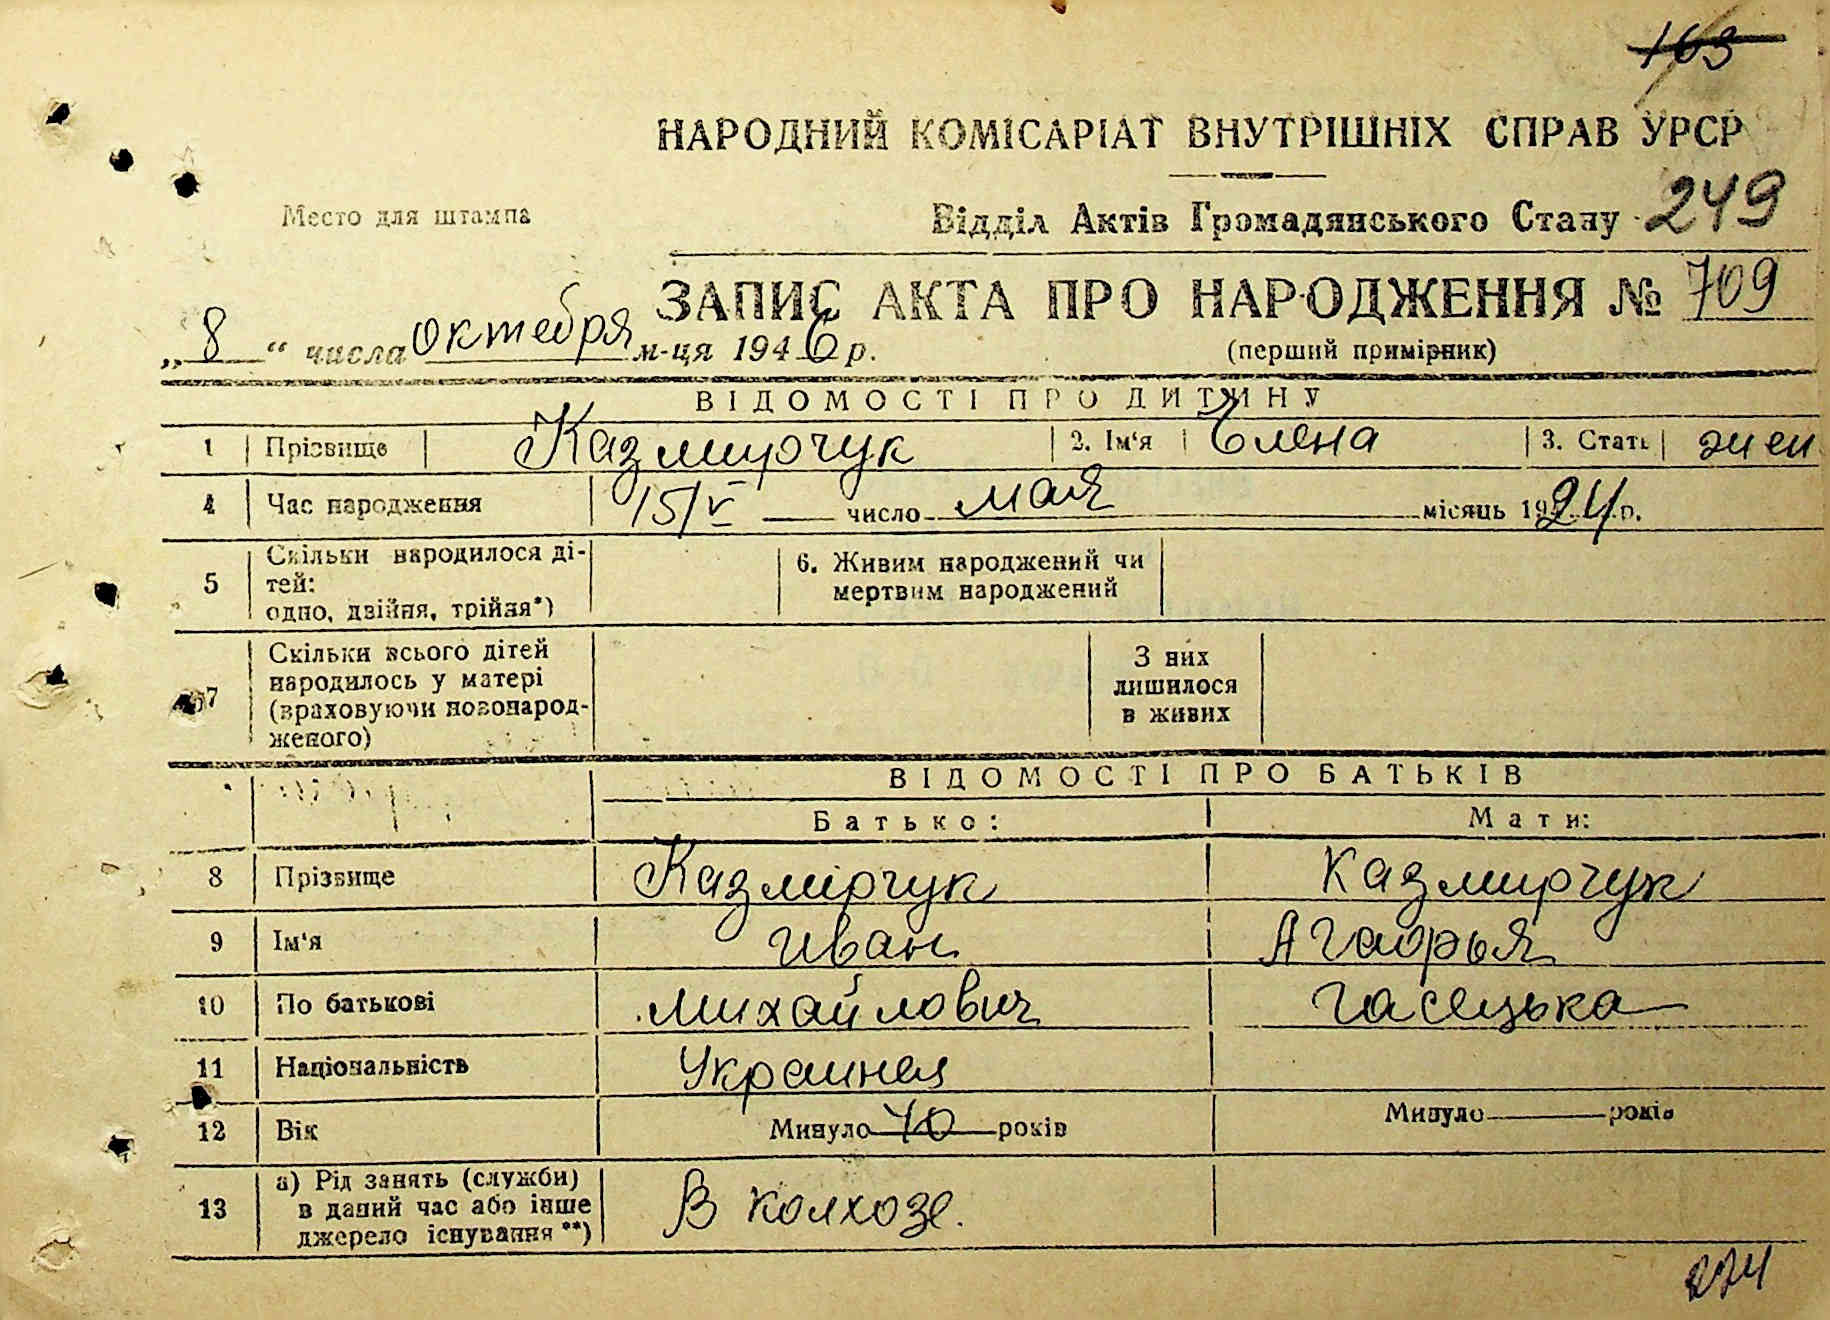 163
НАРОДНИЙ КОМІСАРІАТ ВНУТРІШНІХ СПРАВ УРСР
Место для штампа
Відділ Актів Громадянського Стану 249
ЗАПИС АКТА ПРО НАРОДЖЕННЯ № 709
„8“ числа октября м-ця 1946 р. (перший примірник)
ВІДОМОСТІ ПРО ДИТИНУ
1 Прізвище Казмирчук 2. Ім'я Елена 3. Стать жен
4 Час народження 15/V число мая місяць 1924 р.
5 Скільки народилося ді-
тей:
одно, двійня, трійня*)
6. Живим народжений чи
мертвим народжений
7 Скільки всього дітей
народилось у матері
(враховуючи новонарод-
женого)
З них
лишилося
в живих
ВІДОМОСТІ ПРО БАТЬКІВ
Батько: Мати:
8 Прізвище Казмірчук Казмирчук
9 Ім'я Иван
10 По батькові Михайлович
11 Національність
12 Вік Минуло 40 років Минуло років
13 а) Рід занять (служби)
в даний час або інше
джерело існування **)
В колхозе.
274